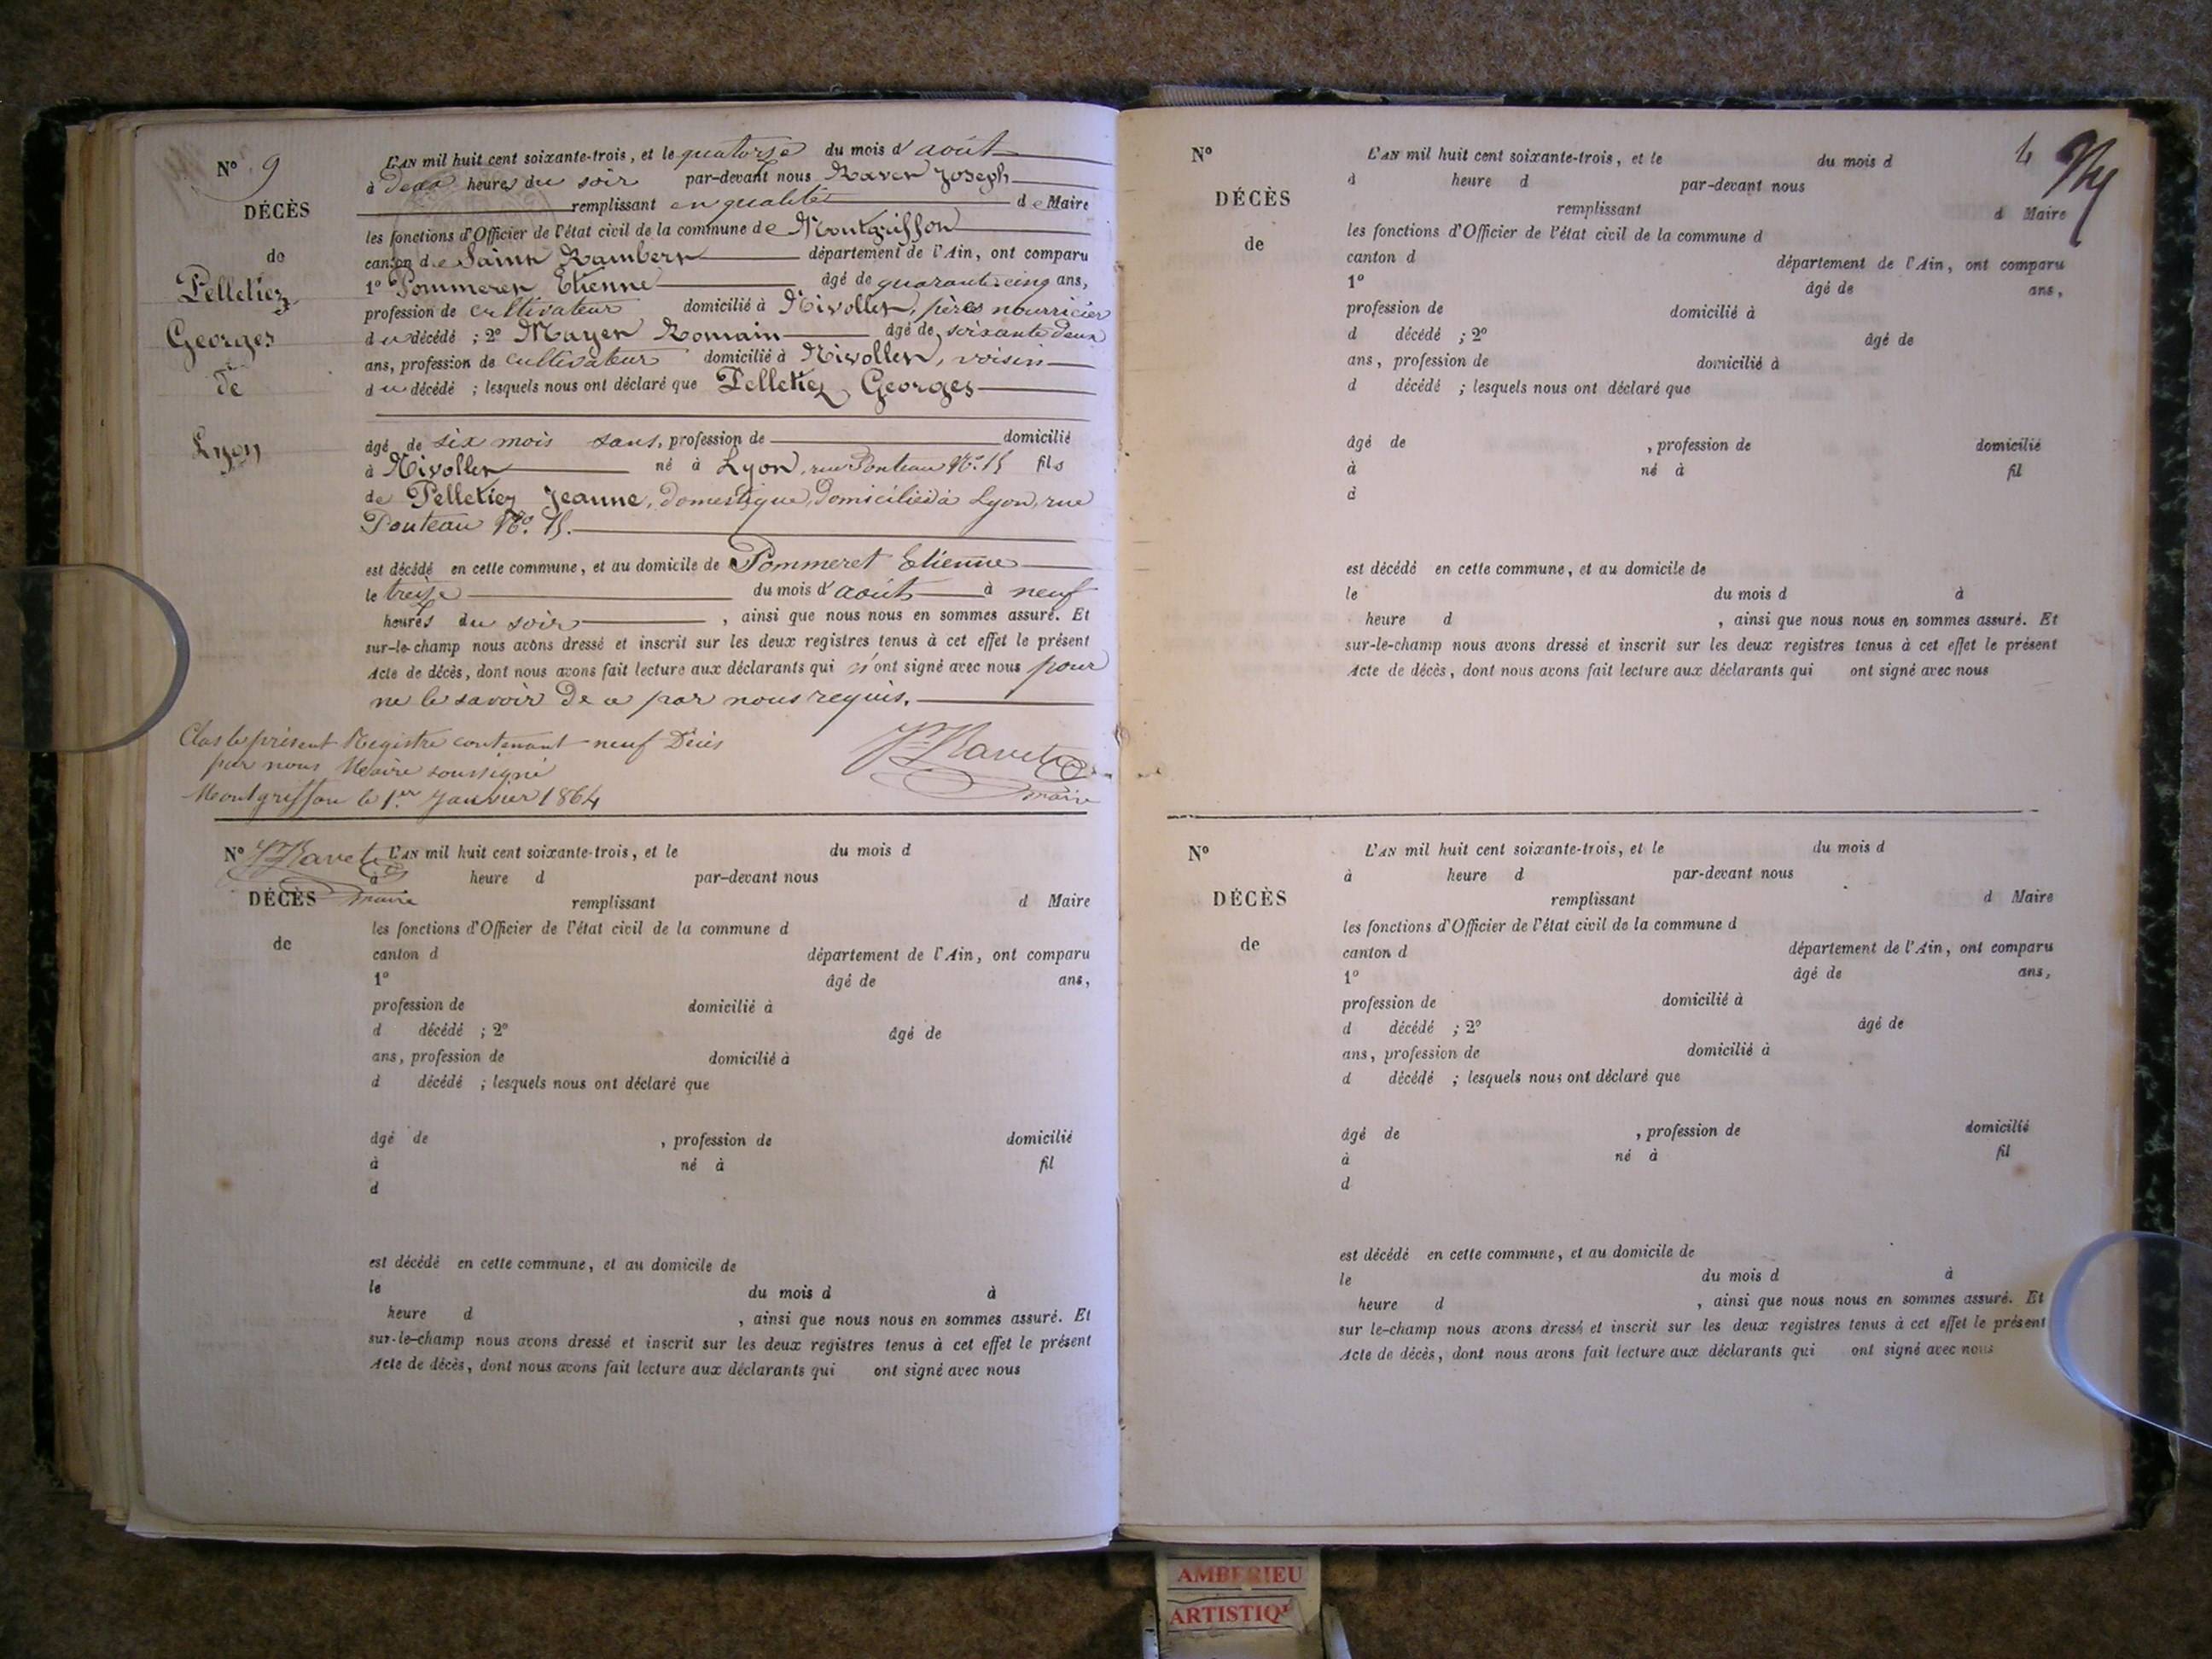 N° 9
DÉCÈS
de
Pelletiez
Georges
de
Lyon
L'AN mil huit cent soixante-trois, et le quatorze du mois d'août
à deux heures du soir par-devant nous Ravet Joseph
remplissant en qualité de Maire
les fonctions d'Officier de l'état civil de la commune de Montgriffon
canton de Saint Rambert département de l'Ain, ont comparu
1° Pommeret Etienne âgé de quarante cinq ans,
profession de cultivateur domicilié à Nivollet, père nourricier
du décédé ; 2° Mayet Romain âgé de soixante deux
ans, profession de cultivateur domicilié à Nivollet, voisin
du décédé ; lesquels nous ont déclaré que Pelletiez Georges
âgé de six mois sans, profession de domicilié
à Nivollet né à Lyon, rue Pouteau N° 15 fils
de Pelletiez Jeanne, domestique, domiciliée à Lyon, rue
Pouteau N° 15.
est décédé en cette commune, et au domicile de Pommeret Etienne
le treize du mois d'août à neuf
heures du soir , ainsi que nous nous en sommes assuré. Et
sur-le-champ nous avons dressé et inscrit sur les deux registres tenus à cet effet le présent
Acte de décès, dont nous avons fait lecture aux déclarants qui n'ont signé avec nous pour
ne le savoir de ce par nous requis.
Clos le présent Registre contenant neuf Décès
par nous Maire soussigné
Montgriffon le 1er Janvier 1864
Ravet
maire
N° Ravet L'AN mil huit cent soixante-trois, et le du mois d
à heure d par-devant nous
DÉCÈS maire remplissant d Maire
les fonctions d'Officier de l'état civil de la commune d
de
canton d département de l'Ain, ont comparu
1° âgé de ans,
profession de domicilié à
d décédé ; 2° âgé de
ans, profession de domicilié à
d décédé ; lesquels nous ont déclaré que
âgé de , profession de domicilié
à né à fil
d
est décédé en cette commune, et au domicile de
le du mois d à
heure d , ainsi que nous nous en sommes assuré. Et
sur-le-champ nous avons dressé et inscrit sur les deux registres tenus à cet effet le présent
Acte de décès, dont nous avons fait lecture aux déclarants qui ont signé avec nous
4
N°
DÉCÈS
de
L'AN mil huit cent soixante-trois, et le du mois d
à heure d par-devant nous
remplissant d Maire
les fonctions d'Officier de l'état civil de la commune d
canton d département de l'Ain, ont comparu
1° âgé de ans,
profession de domicilié à
d décédé ; 2° âgé de
ans, profession de domicilié à
d décédé ; lesquels nous ont déclaré que
âgé de , profession de domicilié
à né à fil
d
est décédé en cette commune, et au domicile de
le du mois d à
heure d , ainsi que nous nous en sommes assuré. Et
sur-le-champ nous avons dressé et inscrit sur les deux registres tenus à cet effet le présent
Acte de décès, dont nous avons fait lecture aux déclarants qui ont signé avec nous
N°
DÉCÈS
de
L'AN mil huit cent soixante-trois, et le du mois d
à heure d par-devant nous
remplissant d Maire
les fonctions d'Officier de l'état civil de la commune d
canton d département de l'Ain, ont comparu
1° âgé de ans,
profession de domicilié à
d décédé ; 2° âgé de
ans, profession de domicilié à
d décédé ; lesquels nous ont déclaré que
âgé de , profession de domicilié
à né à fil
d
est décédé en cette commune, et au domicile de
le du mois d à
heure d , ainsi que nous nous en sommes assuré. Et
sur le-champ nous avons dressé et inscrit sur les deux registres tenus à cet effet le présent
Acte de décès, dont nous avons fait lecture aux déclarants qui ont signé avec nous
AMBERIEU
ARTISTIQU